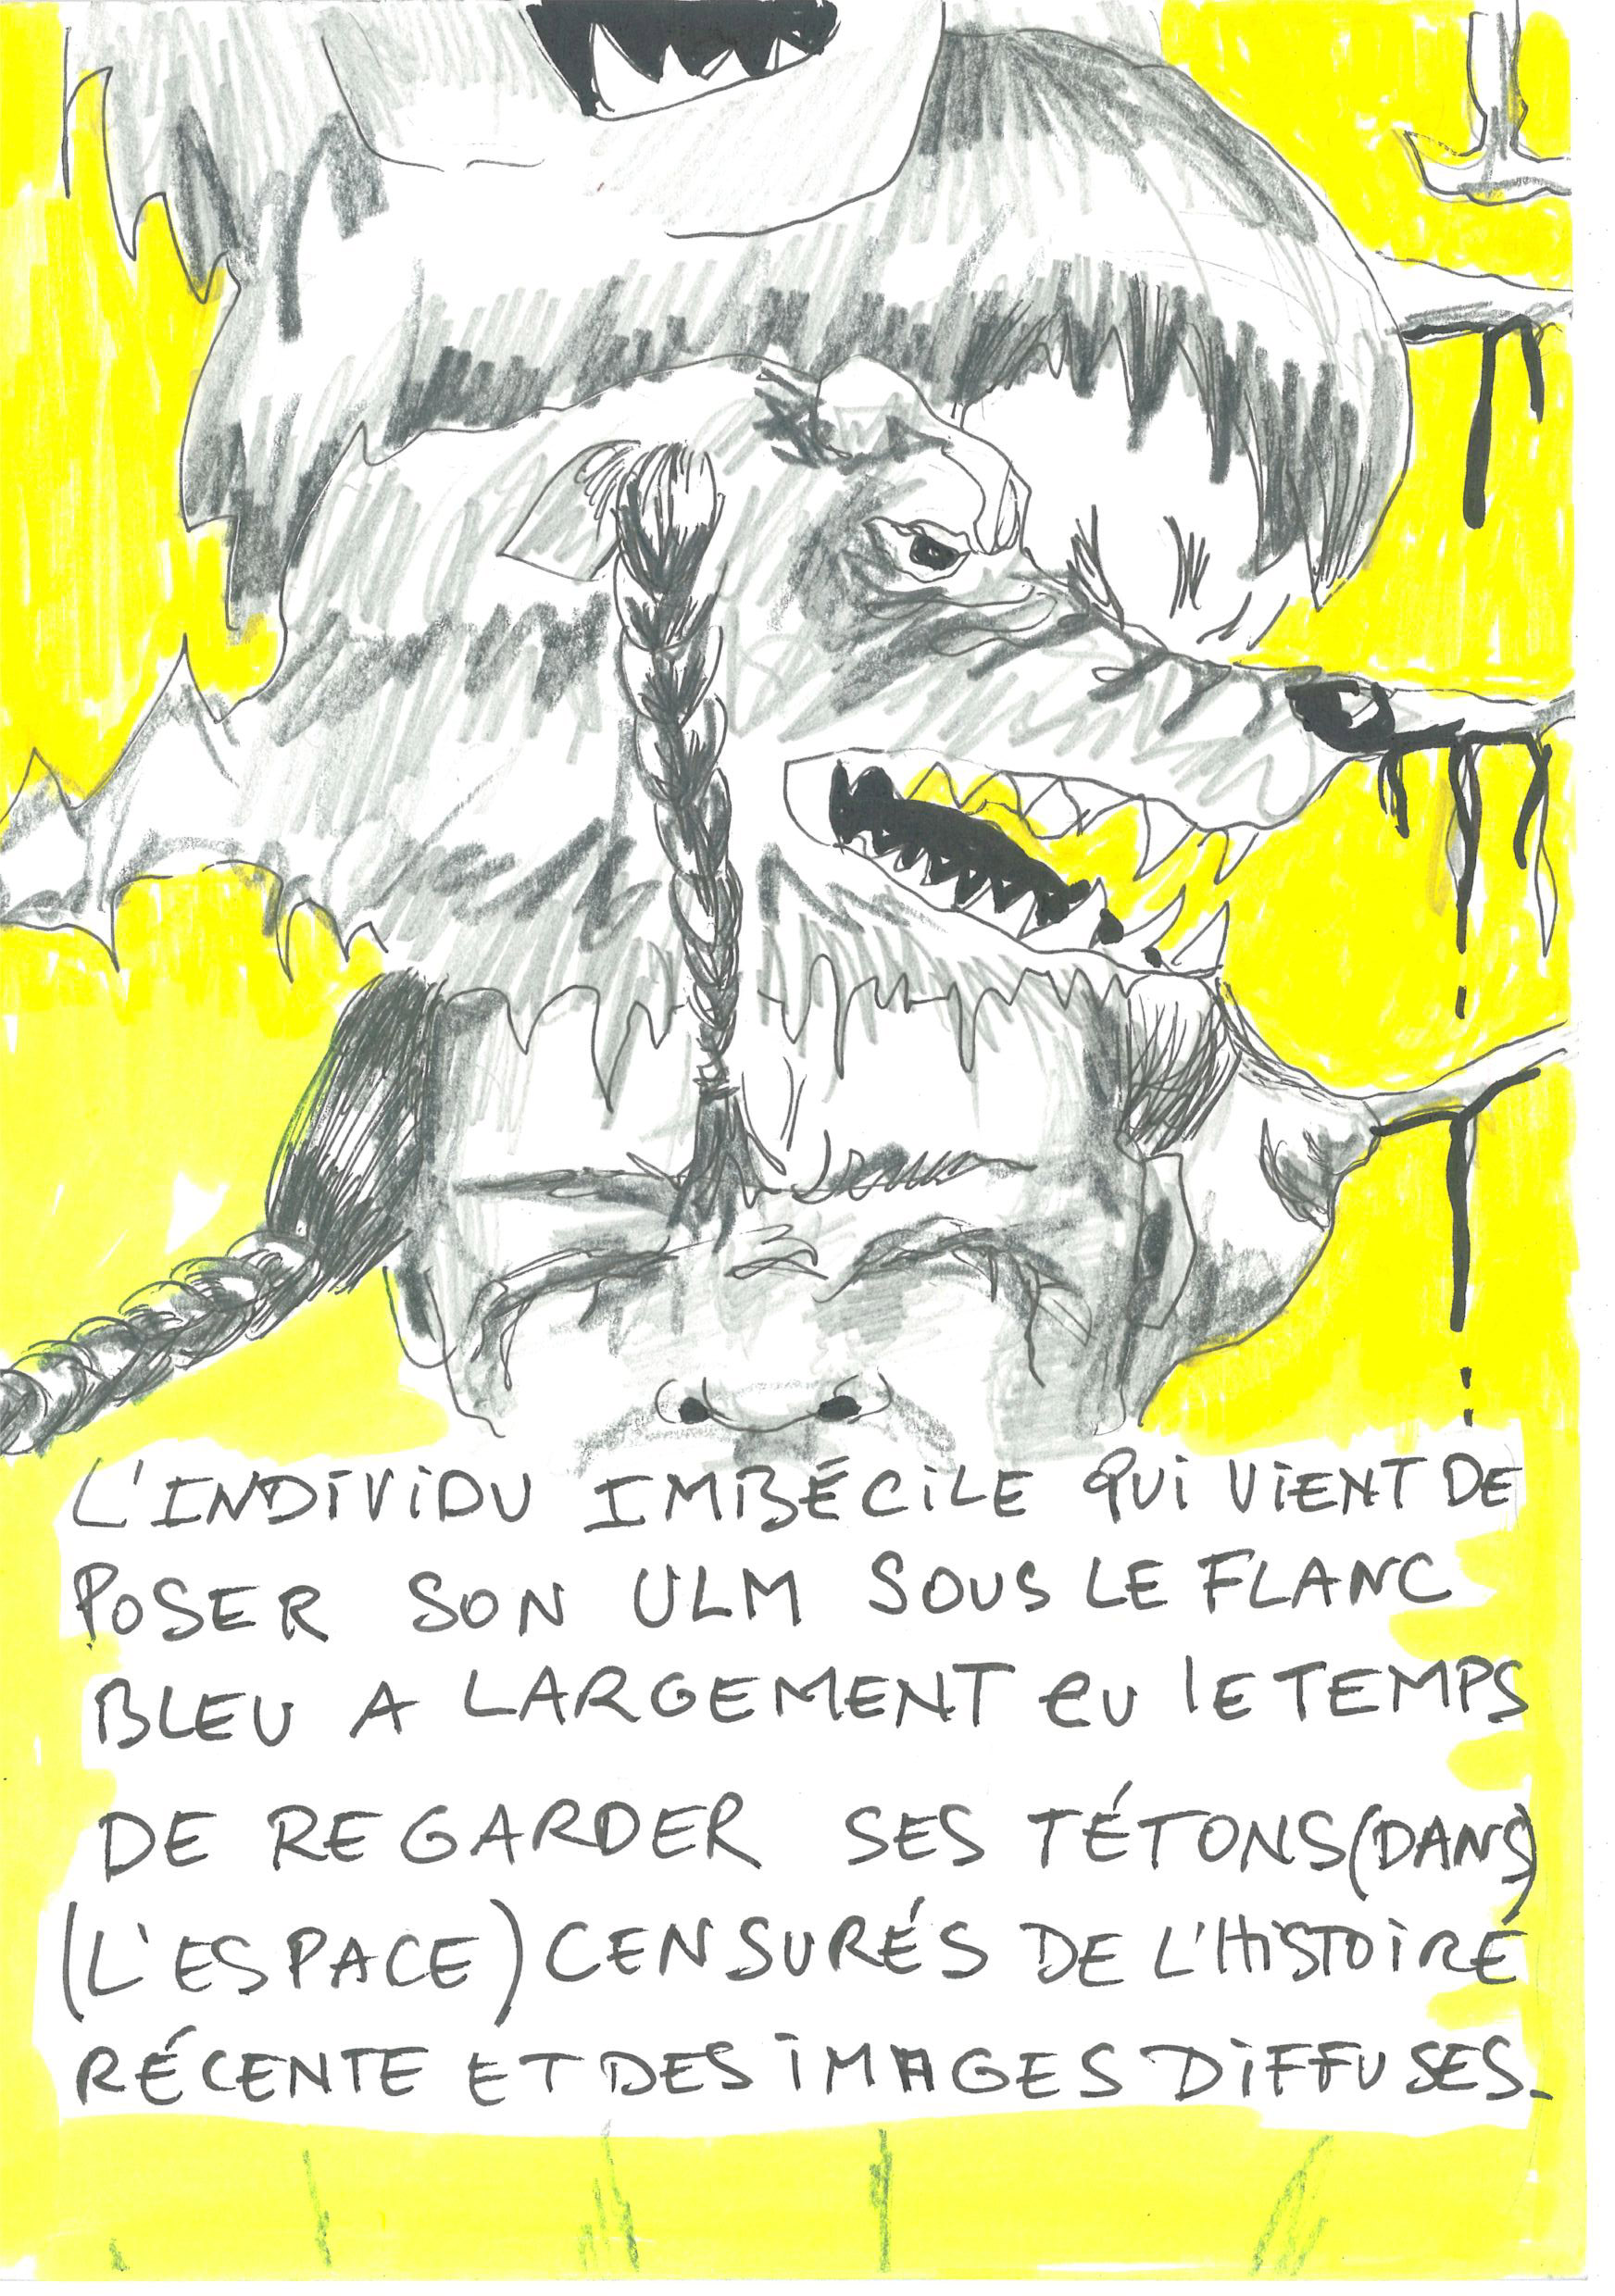 L'INDIVIDU IMBÉCILE QUI VIENT DE
POSER SON ULM SOUS LE FLANC
BLEU A LARGEMENT eU lE TEMPS
DE REGARDER SES TÉTONS (DANS)
(L'ESPACE) CENSURÉS DE L'HISTOIRE
RÉCENTE ET DES IMAGES DIFFUSES.